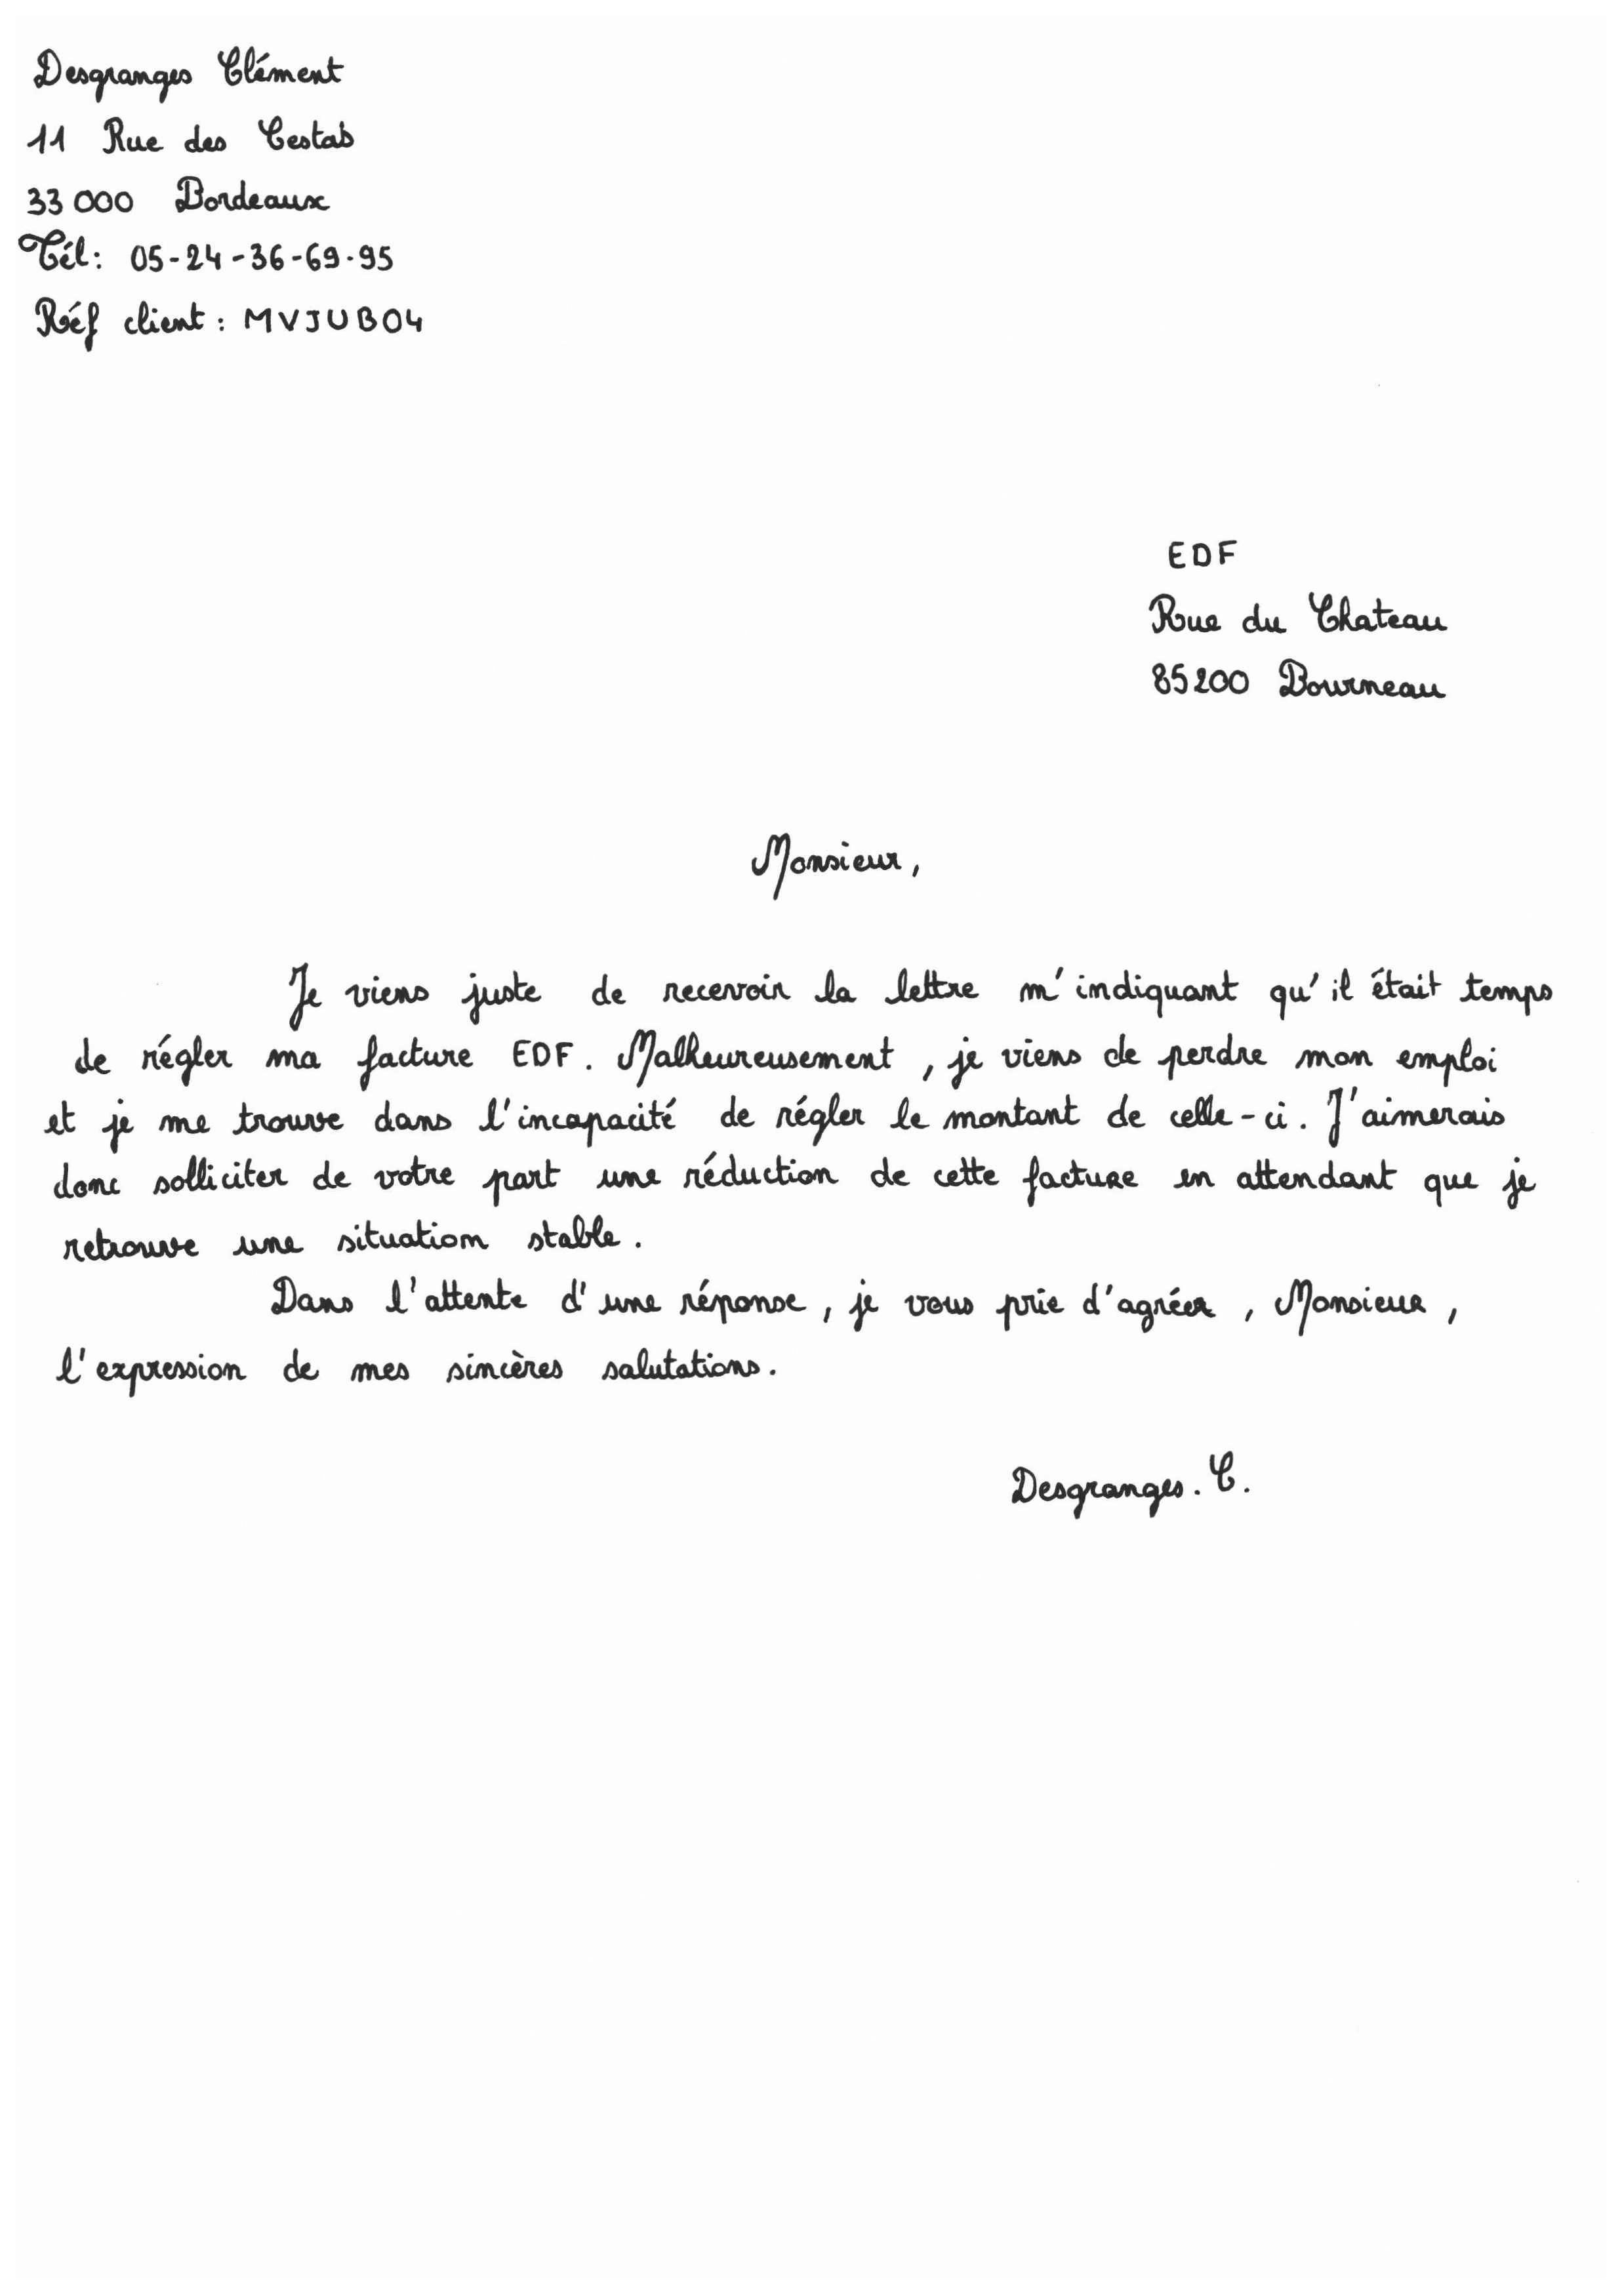 Desgranges Clément
11 Rue des Cestas
33 000 Bordeaux
Tél: 05-24-36-69-95
Réf client : MVJUB04
EDF
Rue du Chateau
85200 Bourneau
Monsieur,
Je viens juste de recevoir la lettre m'indiquant qu'il était temps
de régler ma facture EDF. Malheureusement, je viens de perdre mon emploi
et je me trouve dans l'incapacité de régler le montant de celle-ci. J'aimerais
donc solliciter de votre part une réduction de cette facture en attendant que je
retrouve une situation stable.
Dans l'attente d'une réponse, je vous prie d'agréer, Monsieur,
l'expression de mes sincères salutations.
Desgranges. C.